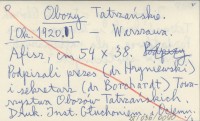 Obozy Tatrzańskie.
[Ok. 1920.] — Warszawa.
Afisz, cm 54 x 38.
Podpisali prezes (dr Hryniewski)
i sekretarz (dr Borchardt) Towa-
rzystwa Obozów Tatrzańskich.
Druk. Inst. Głuchoniem. i Ociemn.